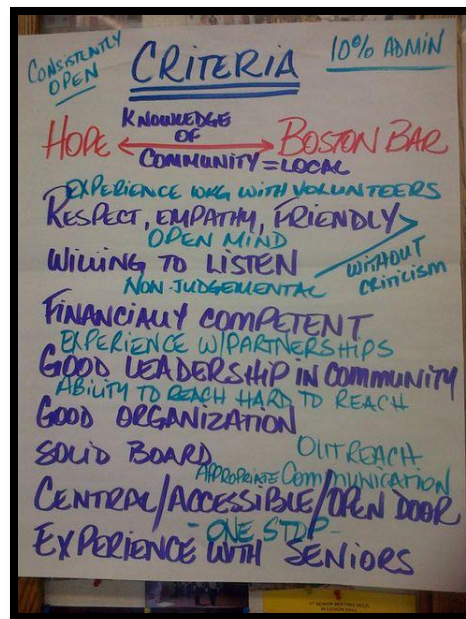 CONSISTENTLY OPEN
CRITERIA
10% ADMIN
KNOWLEDGE
OF
HOPE BOSTON BAR
COMMUNITY = LOCAL
EXPERIENCE WKG WITH VOLUNTEERS
RESPECT, EMPATHY, FRIENDLY
OPEN MIND
WILLING TO LISTEN
WITHOUT CRITICISM
NON-JUDGEMENTAL
FINANCIALLY COMPETENT
EXPERIENCE W/PARTNERSHIPS
GOOD LEADERSHIP IN COMMUNITY
ABILITY TO REACH HARD TO REACH
GOOD ORGANIZATION
OUTREACH
SOLID BOARD
APPROPRIATE COMMUNICATION
CENTRAL/ACCESSIBLE/OPEN DOOR
- ONE STOP -
EXPERIENCE WITH SENIORS